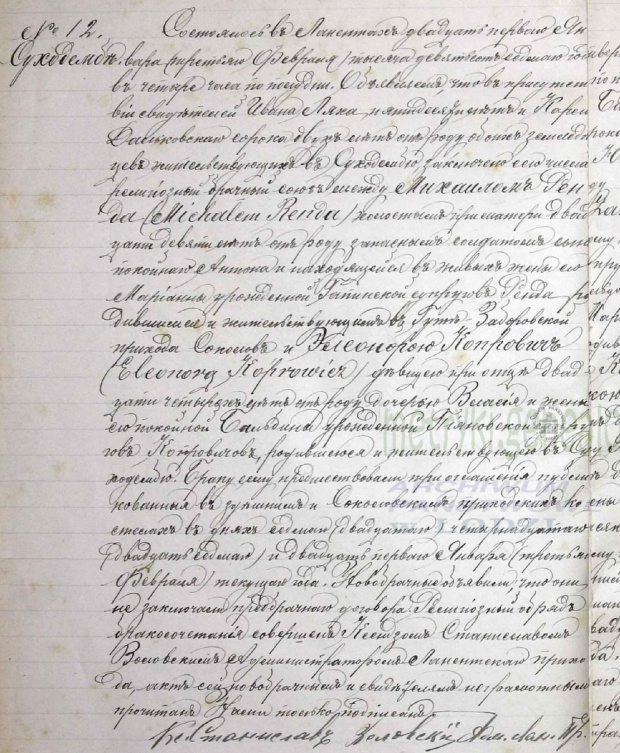 № 12.
Суходембе.
Состоялось въ Ланентахъ двадцать перваго Ян
вара (третьяго Февраля) тысяча девятьсотъ седьмаго года
въ четыре часа по полудни. Объявляемъ что въ присутст
віи свидѣтелей Ивана Ляха, пятидесяти лѣтъ и Карла
сорока двухъ лѣтъ отъ роду обоихъ земледѣль
цевъ жительствующихъ въ Суходембю заключено сего числа
религіозный брачный союзъ между Михаиломъ Рен
да (Michałem Renda) холостымъ при матери двад
цати девяти лѣтъ отъ роду запаснымъ солдатомъ сыномъ
покойнаго Антона и находящейся въ живыхъ жены его
Маріанны урожденной супруговъ Ренда ро
дившимся и жительствующимъ въ Гутѣ-
прихода Соколовъ и Элеонорою Копровичъ
(Eleonorą Koprowicz) дѣвицею при отцѣ двад
цати четырехъ лѣтъ отъ роду дочерью и жены
его покойной урожденной супру
говъ Копровичовъ, родившеюся и жительствующею въ Су
ходембю. Браку сему предшествовали приглашенія публи
кованныя въ здѣшнемъ и Соколовскимъ приходскихъ ко
стелахъ въ дняхъ седьмаго (двадцатаго) четырнадцатаго
(двадцать седьмаго) и двадцать перваго Января (третьяго
Февраля) текущаго года. Новобрачные объявили что они
не заключали предбрачнаго договора. Религіозный обрядъ
бракосочетанія совершенъ Ксендзомъ Станиславомъ
Воловскимъ Администраторомъ Ланентскаго прихо
да, актъ сей новобрачнымъ и свидѣтелямъ неграмотнымъ
прочитанъ Нами только подписанъ.
Кс. Станиславъ Воловскій Адм. Лан. Пр.